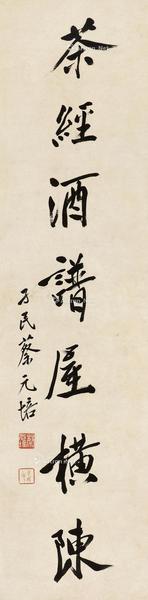 茶經酒譜屋橫陳
孑民蔡元培